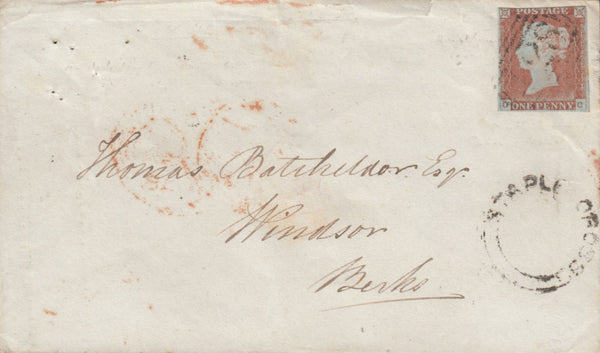 POSTAGE
ONE PENNY
Thomas Batcheldor Esqr
Windsor
Berks
STAPLE CROSS